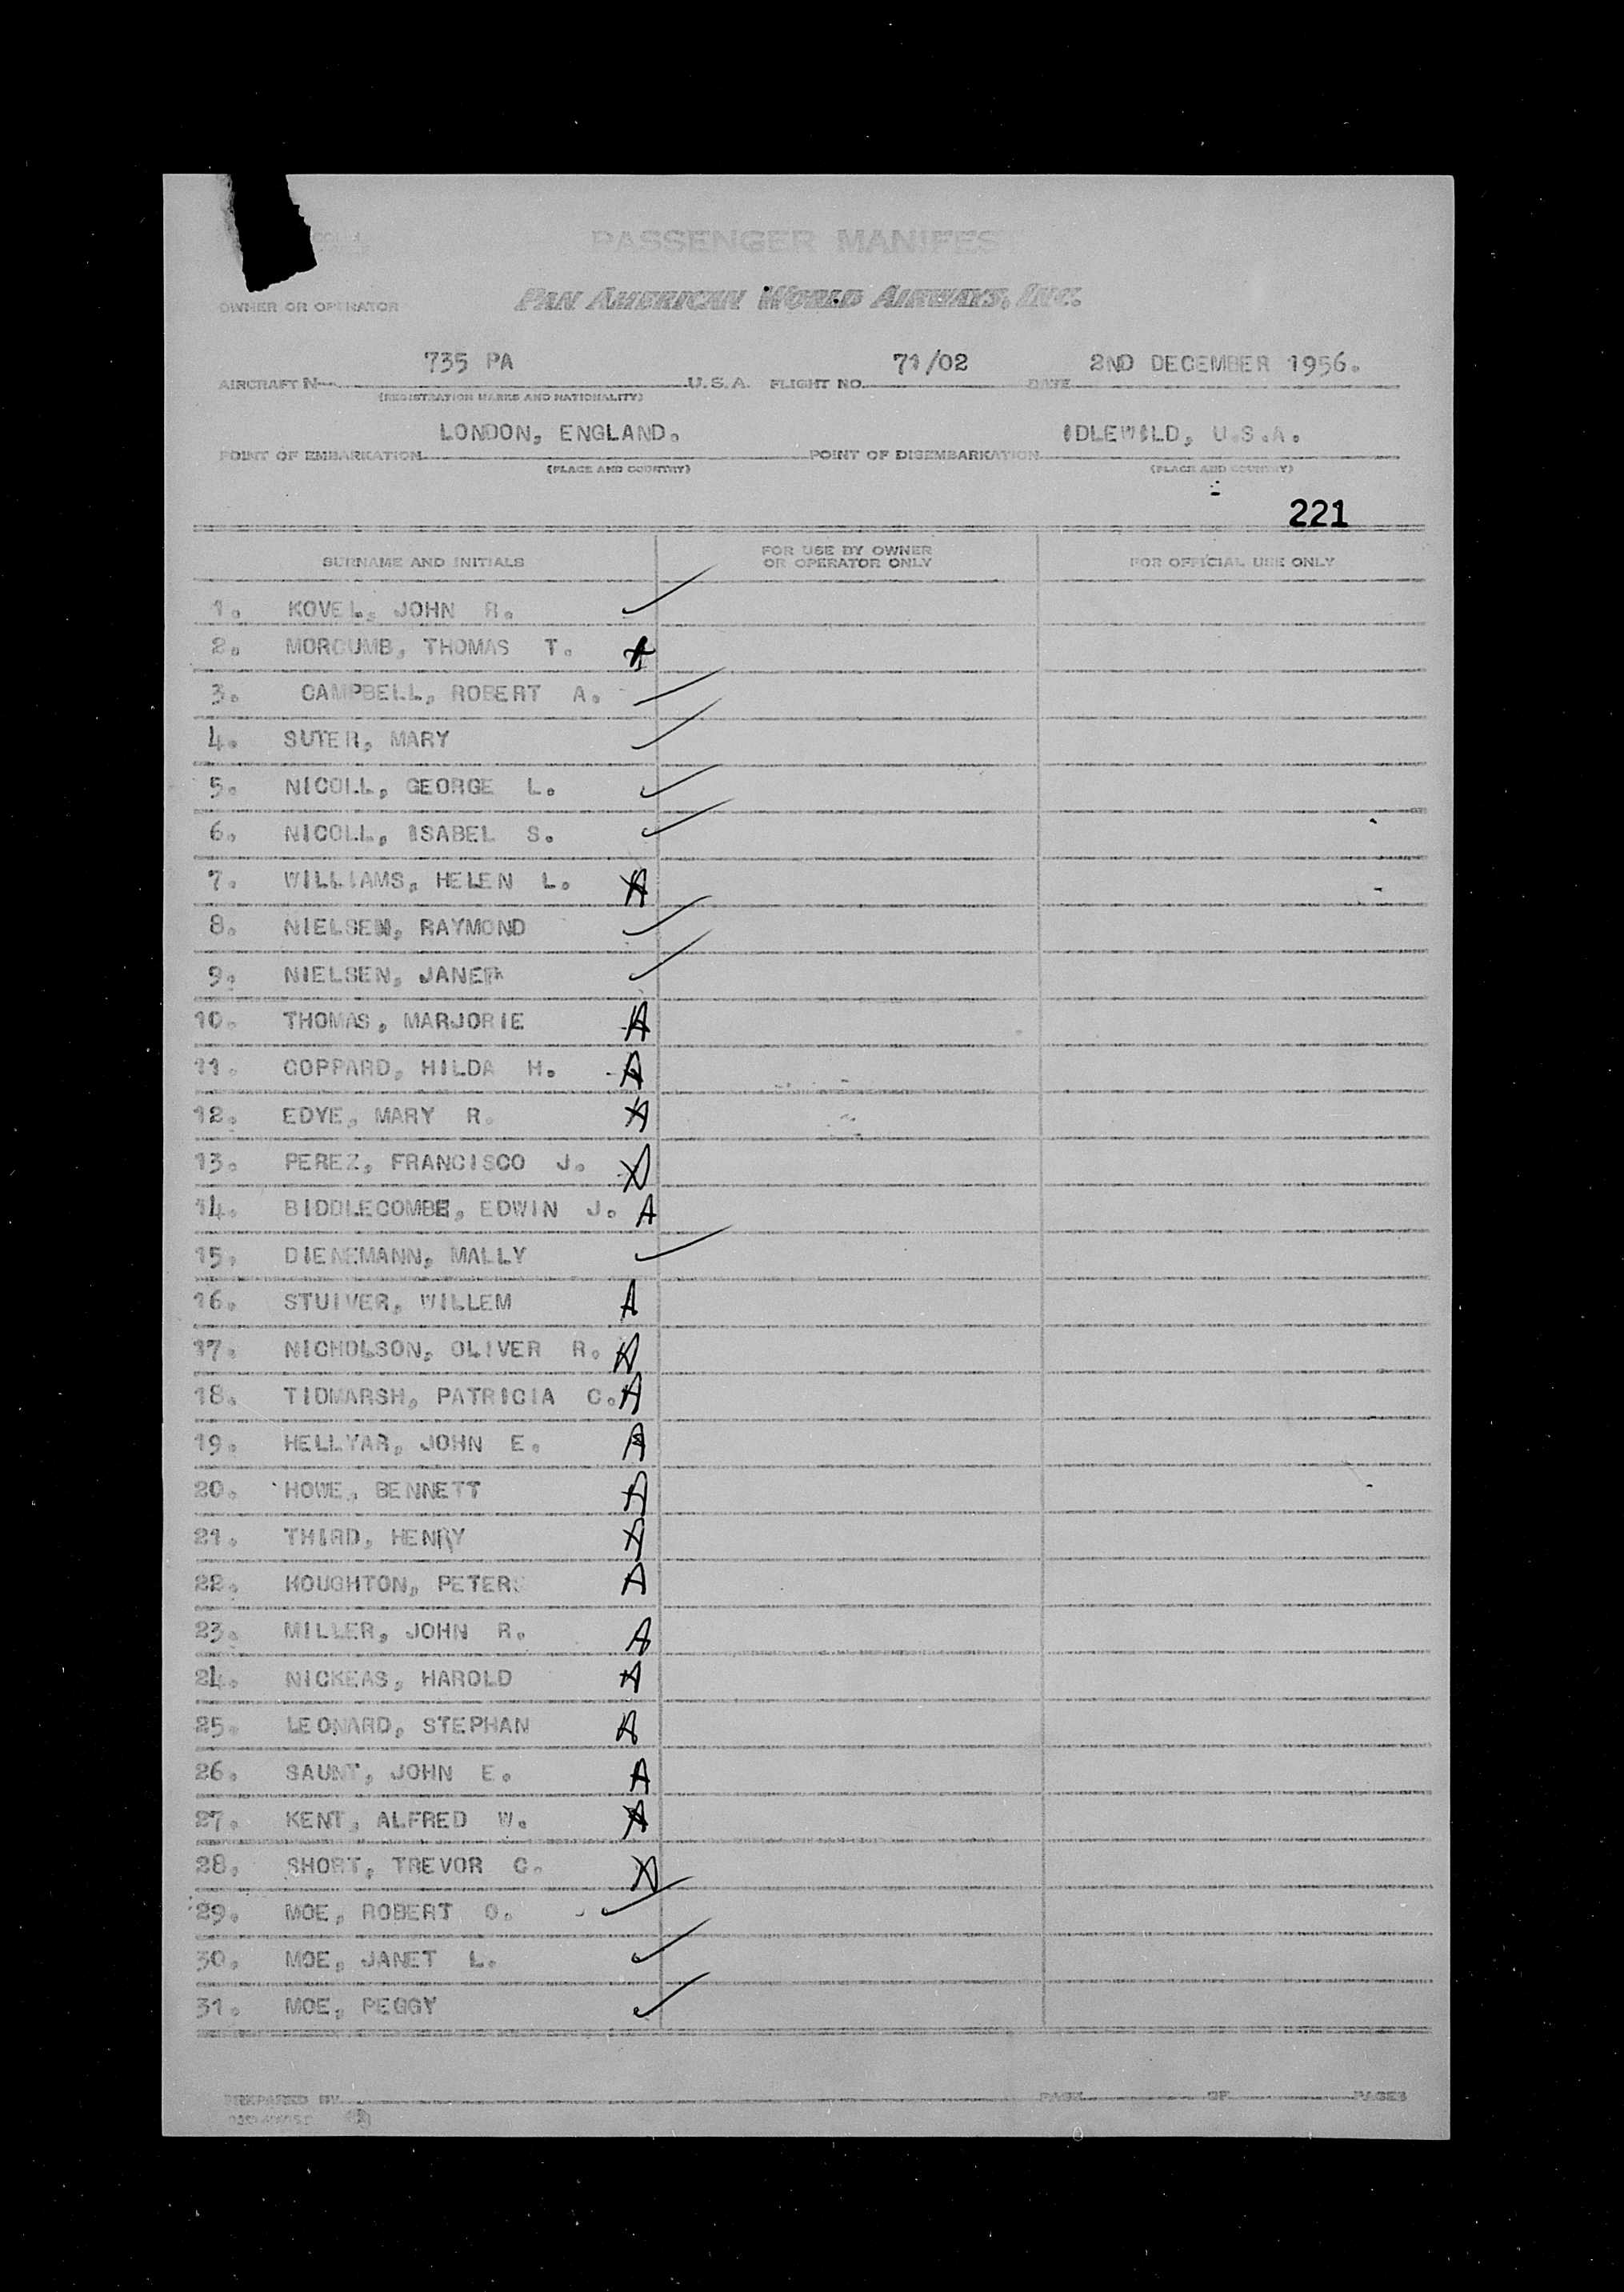 PASSENGER MANIFES
OWNER OR OPERATOR PAN AMERICAN WORLD AIRWAYS, INC.
735 PA 71/02 2ND DECEMBER 1956.
AIRCRAFT N U.S.A. FLIGHT NO. DATE
(REGISTRATION MARKS AND NATIONALITY)
LONDON, ENGLAND. IDLEWILD, U.S.A.
POINT OF EMBARKATION POINT OF DISEMBARKATION
(PLACE AND COUNTRY) (PLACE AND COUNTRY)
221
SURNAME AND INITIALS FOR USE BY OWNER OR OPERATOR ONLY FOR OFFICIAL USE ONLY
1. KOVEL, JOHN R. ✓
2. MORCUMB, THOMAS T. A
3. CAMPBELL, ROBERT A. ✓
4. SUTER, MARY ✓
5. NICOLL, GEORGE L. ✓
6. NICOLL, ISABEL S. ✓
7. WILLIAMS, HELEN L. A
8. NIELSEN, RAYMOND ✓
9. NIELSEN, ✓
10. THOMAS, MARJORIE A
11. COPPARD, HILDA H. A
12. EDYE, MARY R. A
13. PEREZ, FRANCISCO J. A
14. BIDDLECOMBE, EDWIN J. A
15. DIENEMANN, MALLY ✓
16. STUIVER, WILLEM A
17. NICHOLSON, OLIVER R. A
18. TIDMARSH, PATRICIA C. A
19. HELLYAR, JOHN E. A
20. HOWE, BENNETT A
21. THIRD, HENRY A
22. HOUGHTON, PETER A
23. MILLER, JOHN R. A
24. NICKEAS, HAROLD A
25. LEONARD, STEPHAN A
26. SAUNT, JOHN E. A
27. KENT, ALFRED W. A
28. SHORT, TREVOR C. A
29. MOE, ROBERT O. ✓
30. MOE, JANET L. ✓
31. MOE, PEGGY ✓
PREPARED BY PAGE OF PAGES